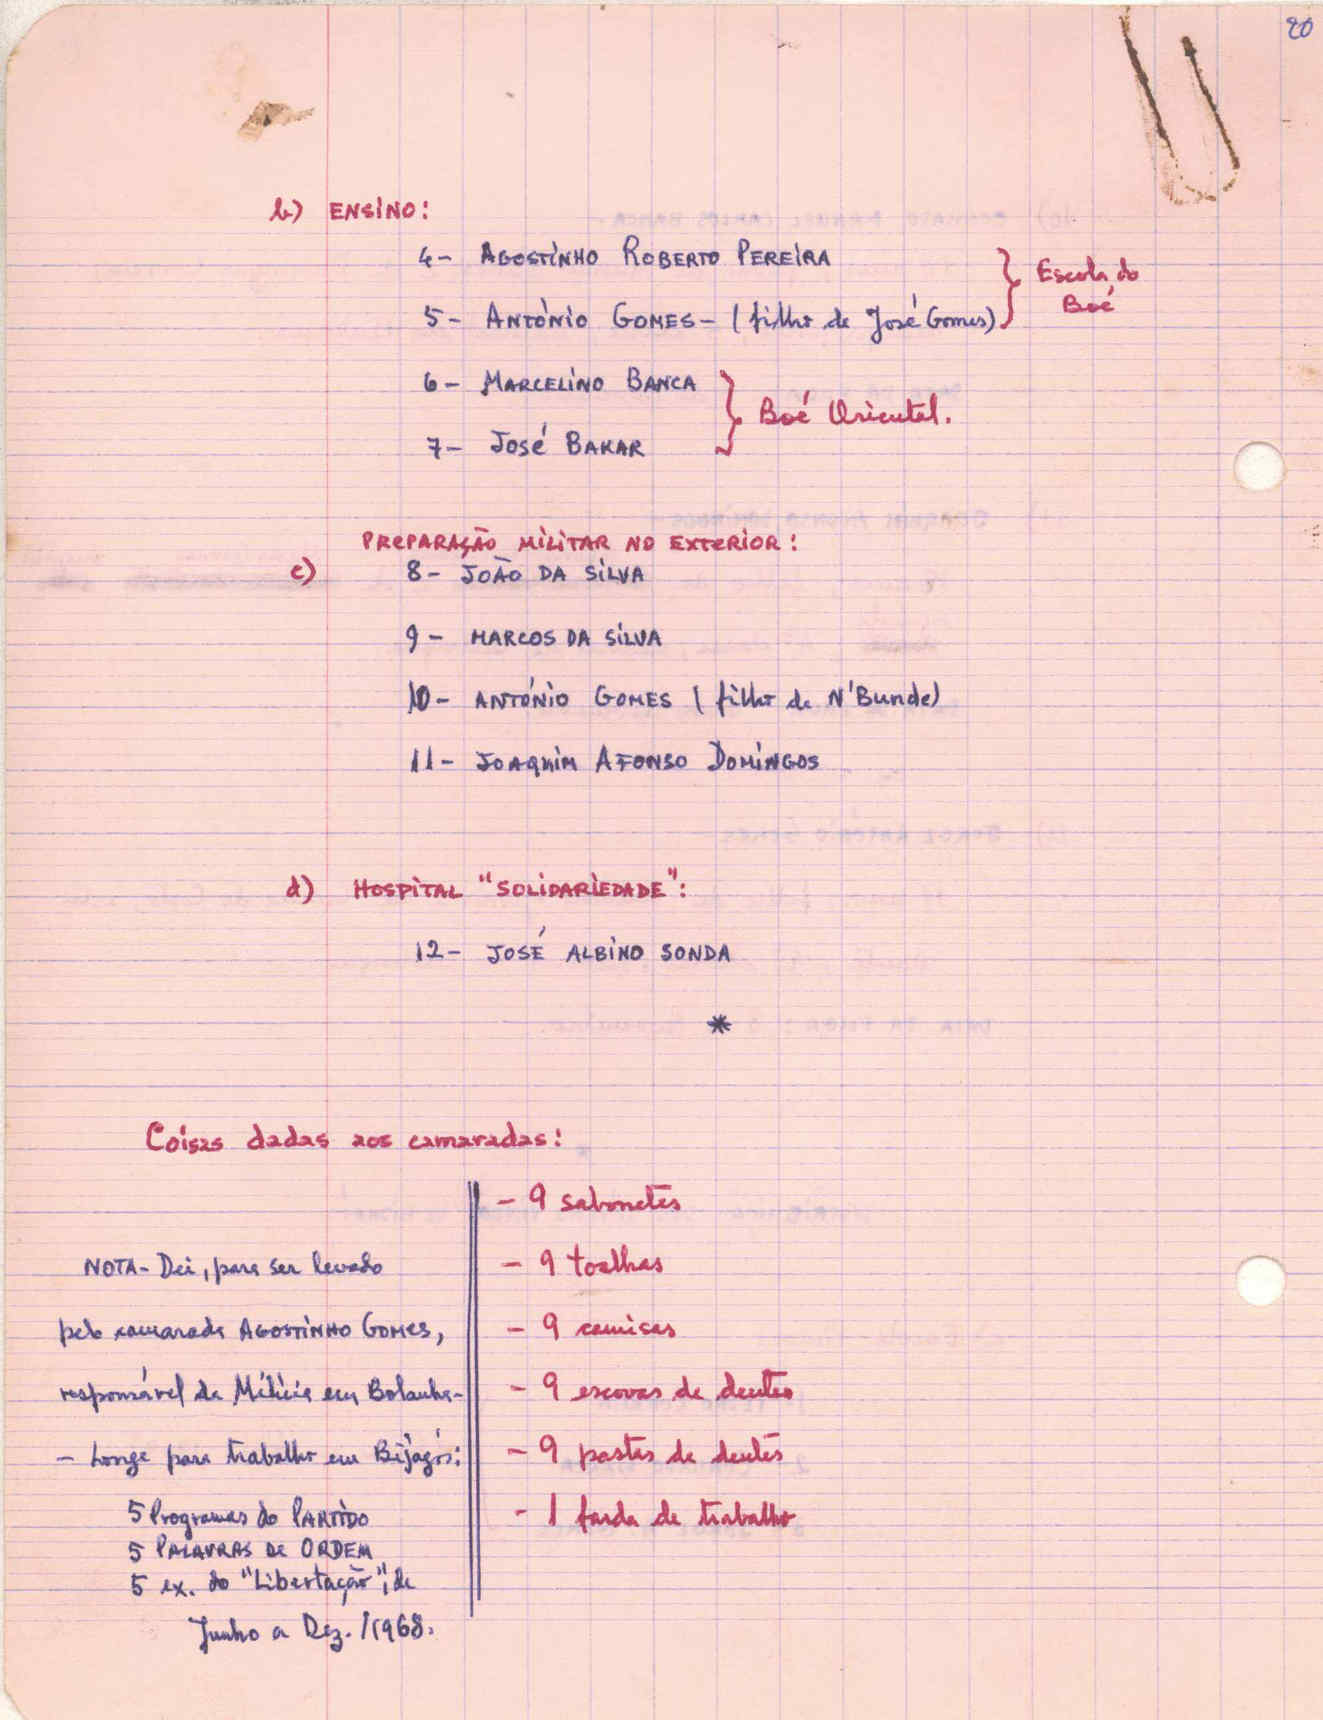 20
b) ENSINO:
4- AGOSTINHO ROBERTO PEREIRA
5- ANTÓNIO GOMES- (filho de José Gomes)
Escola do
Boé
6- MARCELINO BANCA
7- José BAKAR
Boé Oriental.
PREPARAÇÃO MILITAR NO EXTERIOR:
c) 8- JOÃO DA SILVA
9- MARCOS DA SILVA
10- ANTÓNIO GOMES (filho de N'Bunde)
11- JOAQUIM AFONSO DOMINGOS
d) HOSPITAL "SOLIDARIEDADE":
12- JOSÉ ALBINO SONDA
*
Coisas dadas aos camaradas:
NOTA- Dei, para ser levado
pelo camarada AGOSTINHO GOMES,
responsável da Milícia em Bolanha-
- Longe para trabalho em Bijagós:
5 Programas do PARTIDO
5 PALAVRAS DE ORDEM
5 ex. do "Libertação", de
Junho a Dez. /1968.
- 9 sabonetes
- 9 toalhas
- 9 camisas
- 9 escovas de dentes
- 9 pastas de dentes
- 1 farda de trabalho